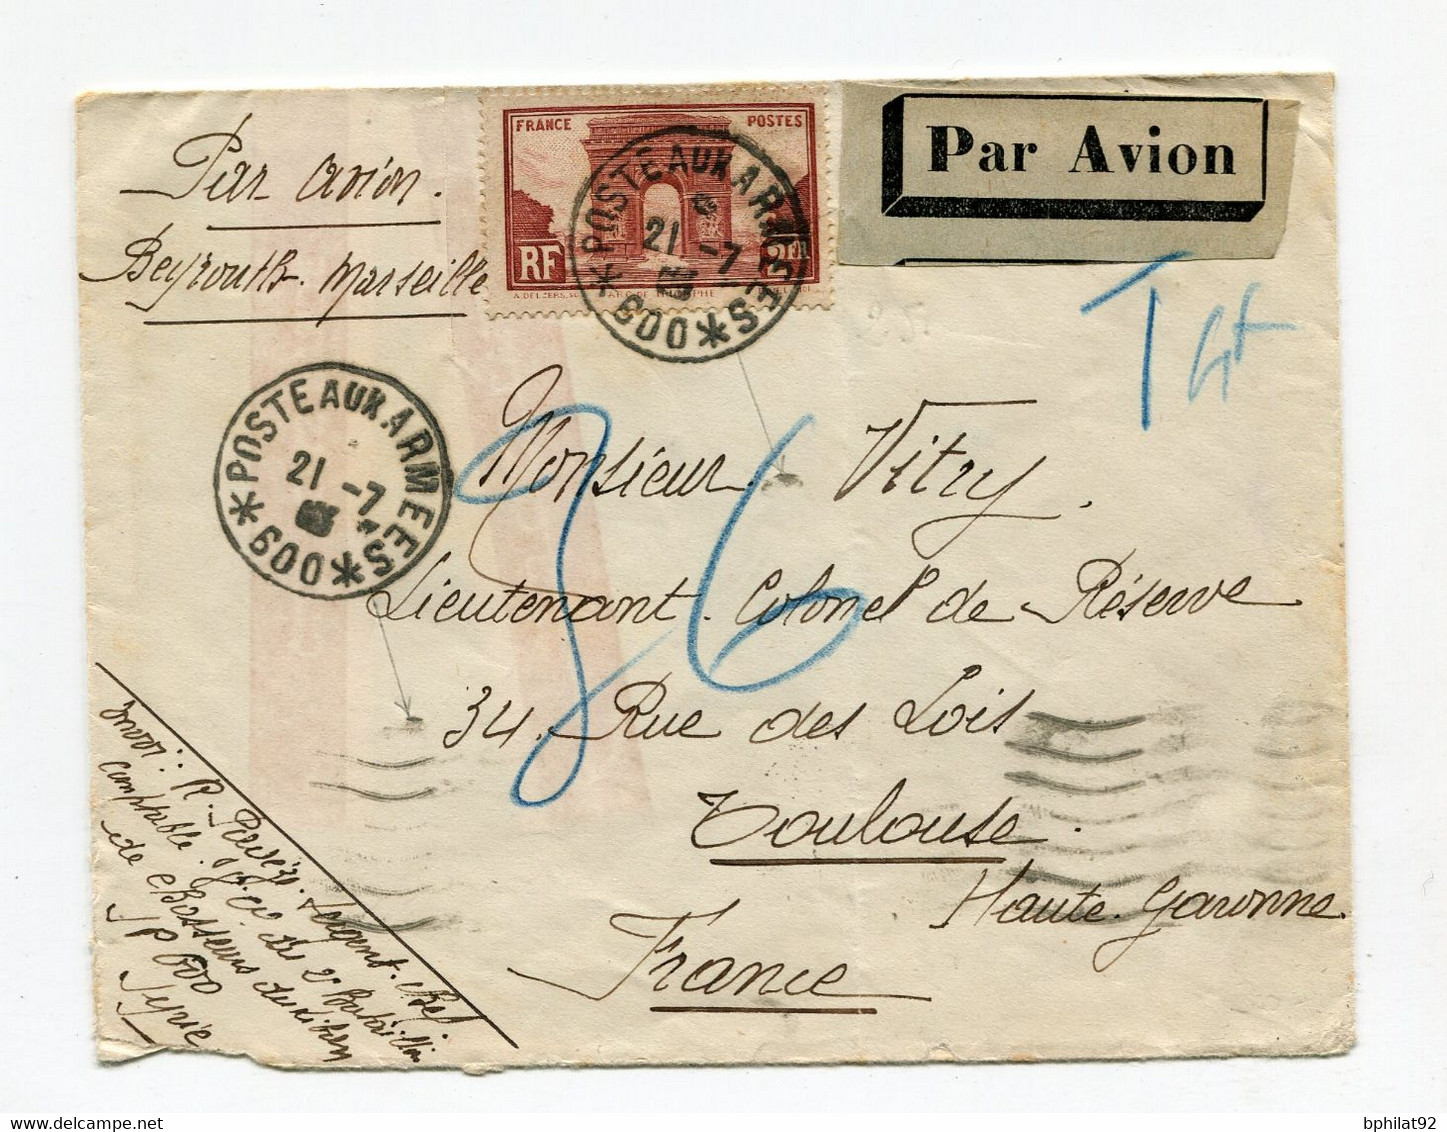 Par avion.
Beyrouth-Marseille
FRANCE POSTES
RF 2Fr
ARC DE TRIOMPHE
Par Avion
POSTE AUX ARMEES
21 -7
*600*
T
POSTE AUX ARMEES
21 -7
*600*
36
Monsieur Vitry.
Lieutenant-Colonel de Réserve
34. Rue des Lois
Toulouse.
Haute-Garonne.
France
Envoi: R. Sergent-chef
comptable. 2e Bataillon
de chasseurs du Liban
SP 600
Syrie
bphilat92